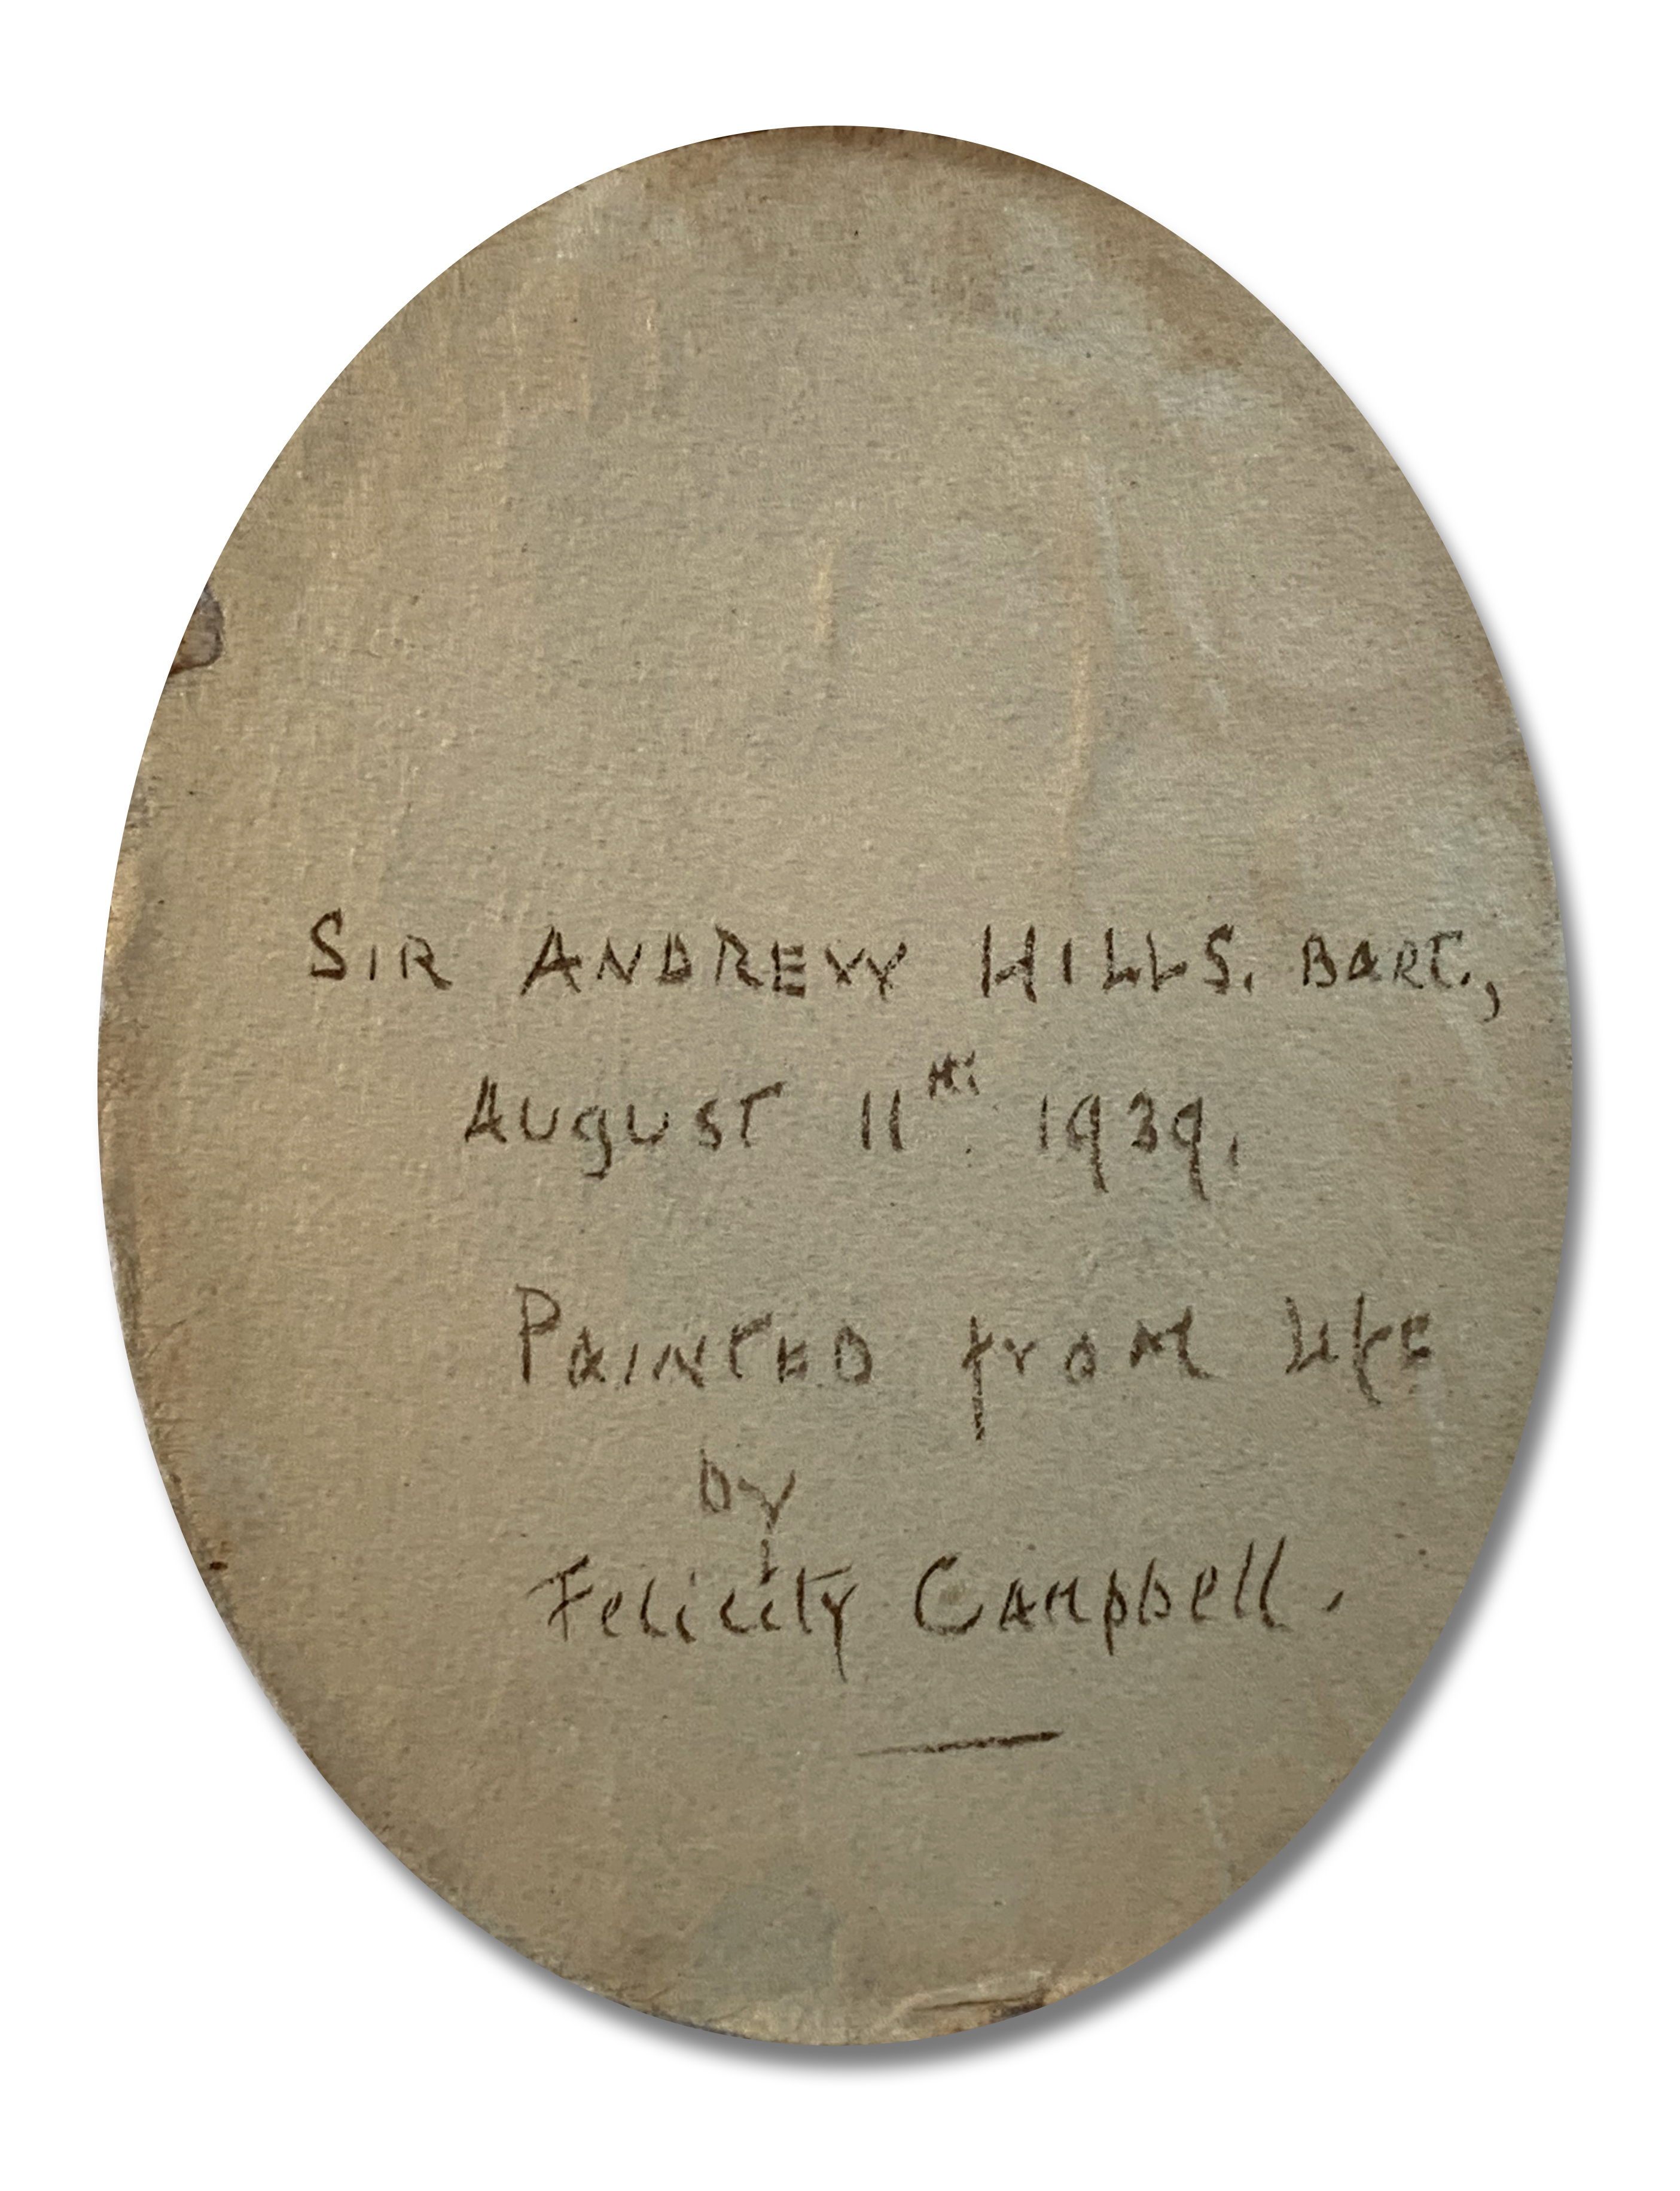 SIR ANDREW HILLS. BART.,
August 11th. 1939.
Painted from life
by
Felicity Campbell.